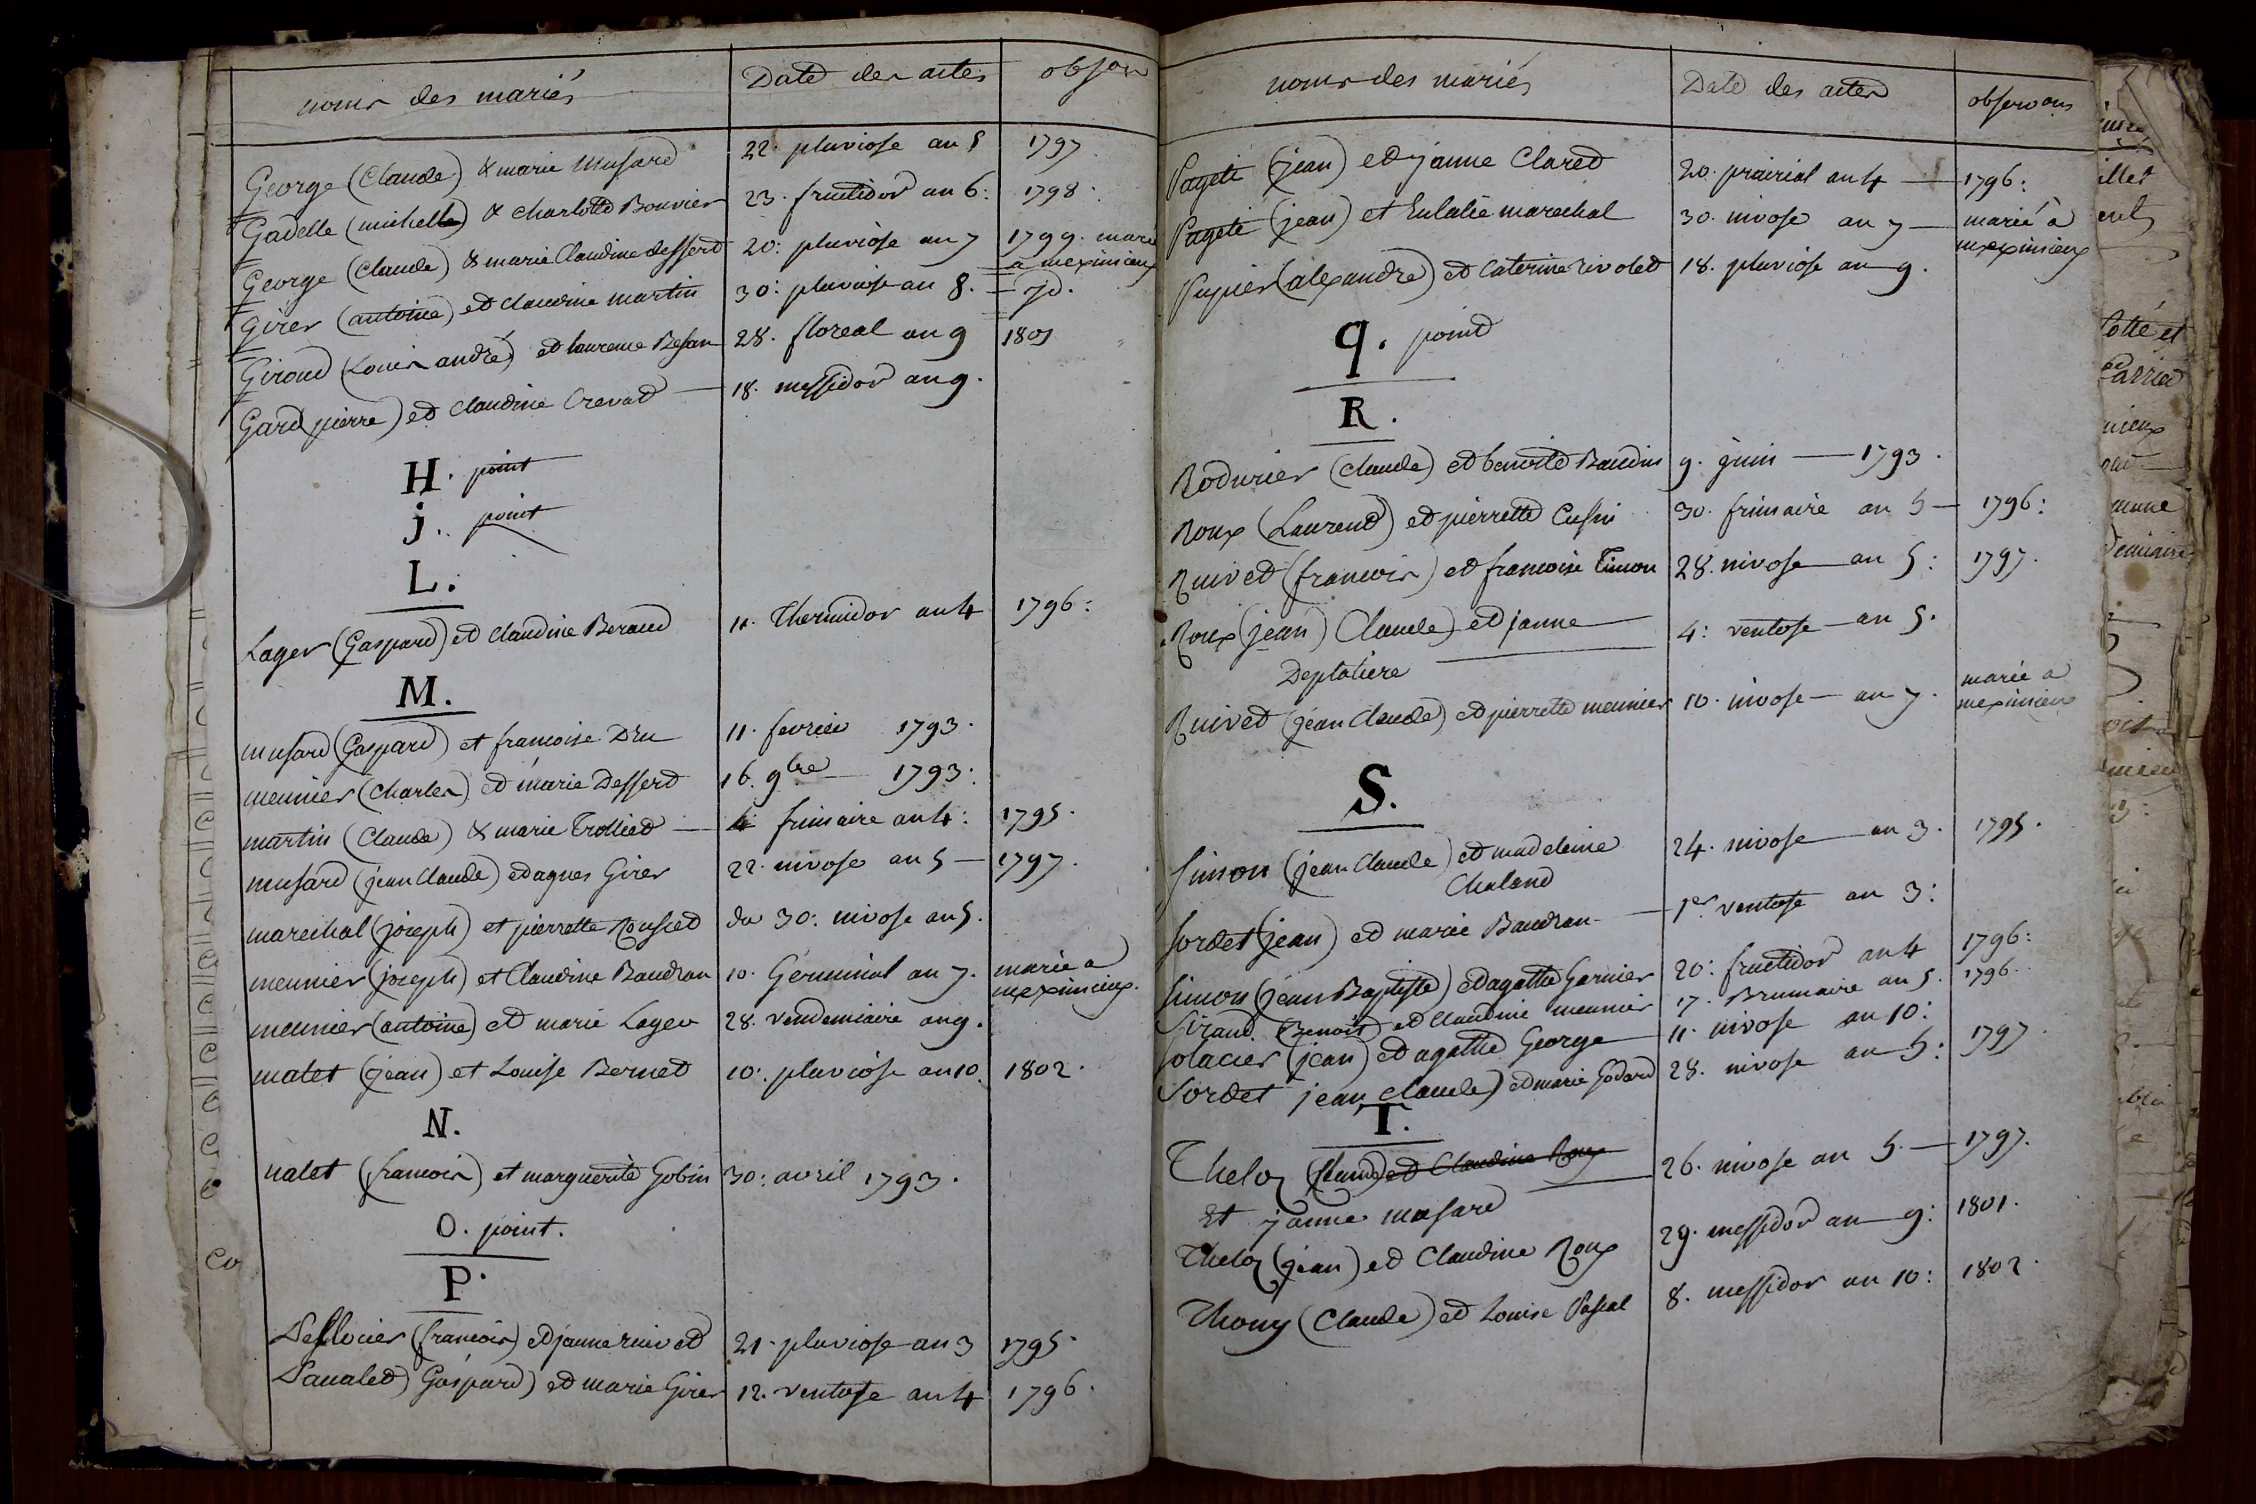 noms des mariés Date des actes obser
George (Claude) & marie musard 22. pluviose an 5 1797
Gadelle (michelle) & Charlotte Bouvier 23. fructidor an 6: 1798.
George (Claude) & marie Claudine dessert 20: pluviose an 7 1799. marié
a meximieux
Girer (antoine) et claudine martin 30: pluviose an 8. — jd.
Giroud (Louis andré) et laurence Besan 28. floreal an 9 1801
Gard pierre) et Claudine Crevat — 18. messidor an 9.
H. point
j. point
L.
Lager (Gaspard) et claudine Beraud 11. Thermidor an 4 1796:
M.
musard (Gaspard) et francoise Dru 11. fevrier 1793.
meunier (Charles) et marie Dessert 16. 9bre — 1793:
martin (Claude) & marie Trolliet — 4 frimaire an 4: 1795.
musard (jean Claude) et agnes Girer 22. nivose an 5 — 1797.
marechal (joseph) et pierrette Rousset du 30: nivose an 5.
meunier (joseph) et Claudine Baudran 10. Germinal an 7. marié a
meximieux.
meunier (antoine) et marie Lager 28. vendemiaire an 9.
malet (jean) et Louise Bernet 10: pluviose an 10. 1802.
N.
nalet (francois) et marguerite Gobin 30: avril 1793.
O. point.
P.
(francois) et janne ruivet 21. pluviose an 3 1795.
Gaspard) et marie Girer 12. ventose an 4 1796.
noms des mariés Date des actes observons
Pageté (jean) et janne Claret 20. prairial an 4 — 1796:
Pageté (jean) et Eulalie marechal 30. nivose an 7 — marié à
meximieux
Pupier (alexandre) et Caterine rivolet 18. pluviose an 9.
q. point
R.
Rodurier (Claude) et benoite Baudin 9. juin — 1793.
Roux (Laurent) et pierrette Cusin 30. frimaire an 5 — 1796:
Ruivet (francois) et francoise Timon 28. nivose an 5: 1797.
Roux (jean) Claude) et janne — 4: ventose an 5.
Deplatiere
Ruivet (jean Claude) et pierrette meunier 10. nivose — an 7. marié a
meximieux
S.
Simon (jean Claude) et madeleine 24. nivose — an 3. 1795.
Chaland
Sordet (jean) et marie Baudran — 1er ventose an 3:
Simon (jean Baptiste) et agathe Garnier 20: fructidor an 4 1796:
Siraud (Benoit) et Claudine meunier 17. Brumaire an 5. 1796.
Solacier (jean) et agathe George — 11. nivose an 10:
Sordet jean claude) et marie Godard 28. nivose an 5: 1797.
T.
Theloz (Claude) et Claudine Roux 26. nivose an 5. — 1797.
Et janne musard
Theloz (jean) et Claudine Roux 29. messidor an 9: 1801.
Thony (Claude) et Louise Pascal 8. messidor an 10: 1802.